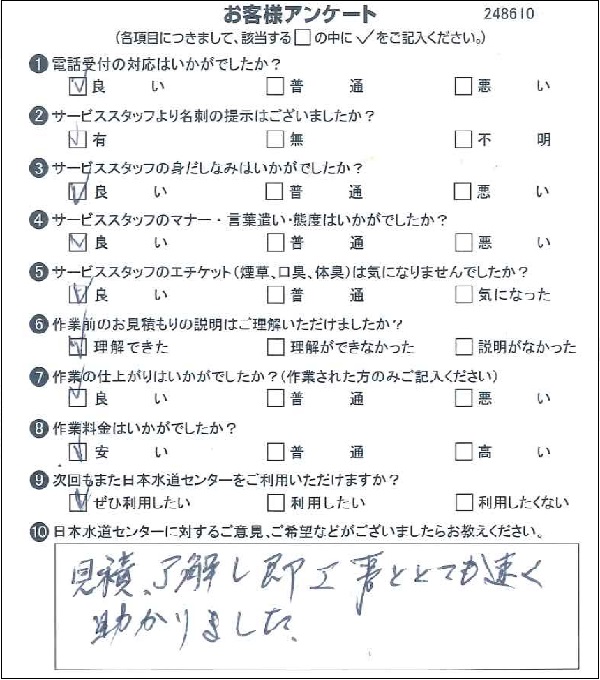 お客様アンケート 248610
(各項目につきまして、該当する□の中に✓をご記入ください。)
❶電話受付の対応はいかがでしたか?
☑良い □普通 □悪い
❷サービススタッフより名刺の提示はございましたか?
☑有 □無 □不明
❸サービススタッフの身だしなみはいかがでしたか?
☑良い □普通 □悪い
❹サービススタッフのマナー・言葉遣い・態度はいかがでしたか?
☑良い □普通 □悪い
❺サービススタッフのエチケット(煙草、口臭、体臭)は気になりませんでたか?
☑良い □普通 □気になった
❻作業前のお見積もりの説明はご理解いただけましたか?
☑理解できた □理解ができなかった □説明がなかった
❼作業の仕上がりはいかがでしたか?(作業された方のみご記入ください)
☑良い □普通 □悪い
❽作業料金はいかがでしたか?
☑安い □普通 □高い
❾次回もまた日本水道センターをご利用いただけますか?
☑ぜひ利用したい □利用したい □利用したくない
❿日本水道センターに対するご意見、ご希望などがございましたらお教えください。
見積、了解し即工事ととても速く
助かりました、